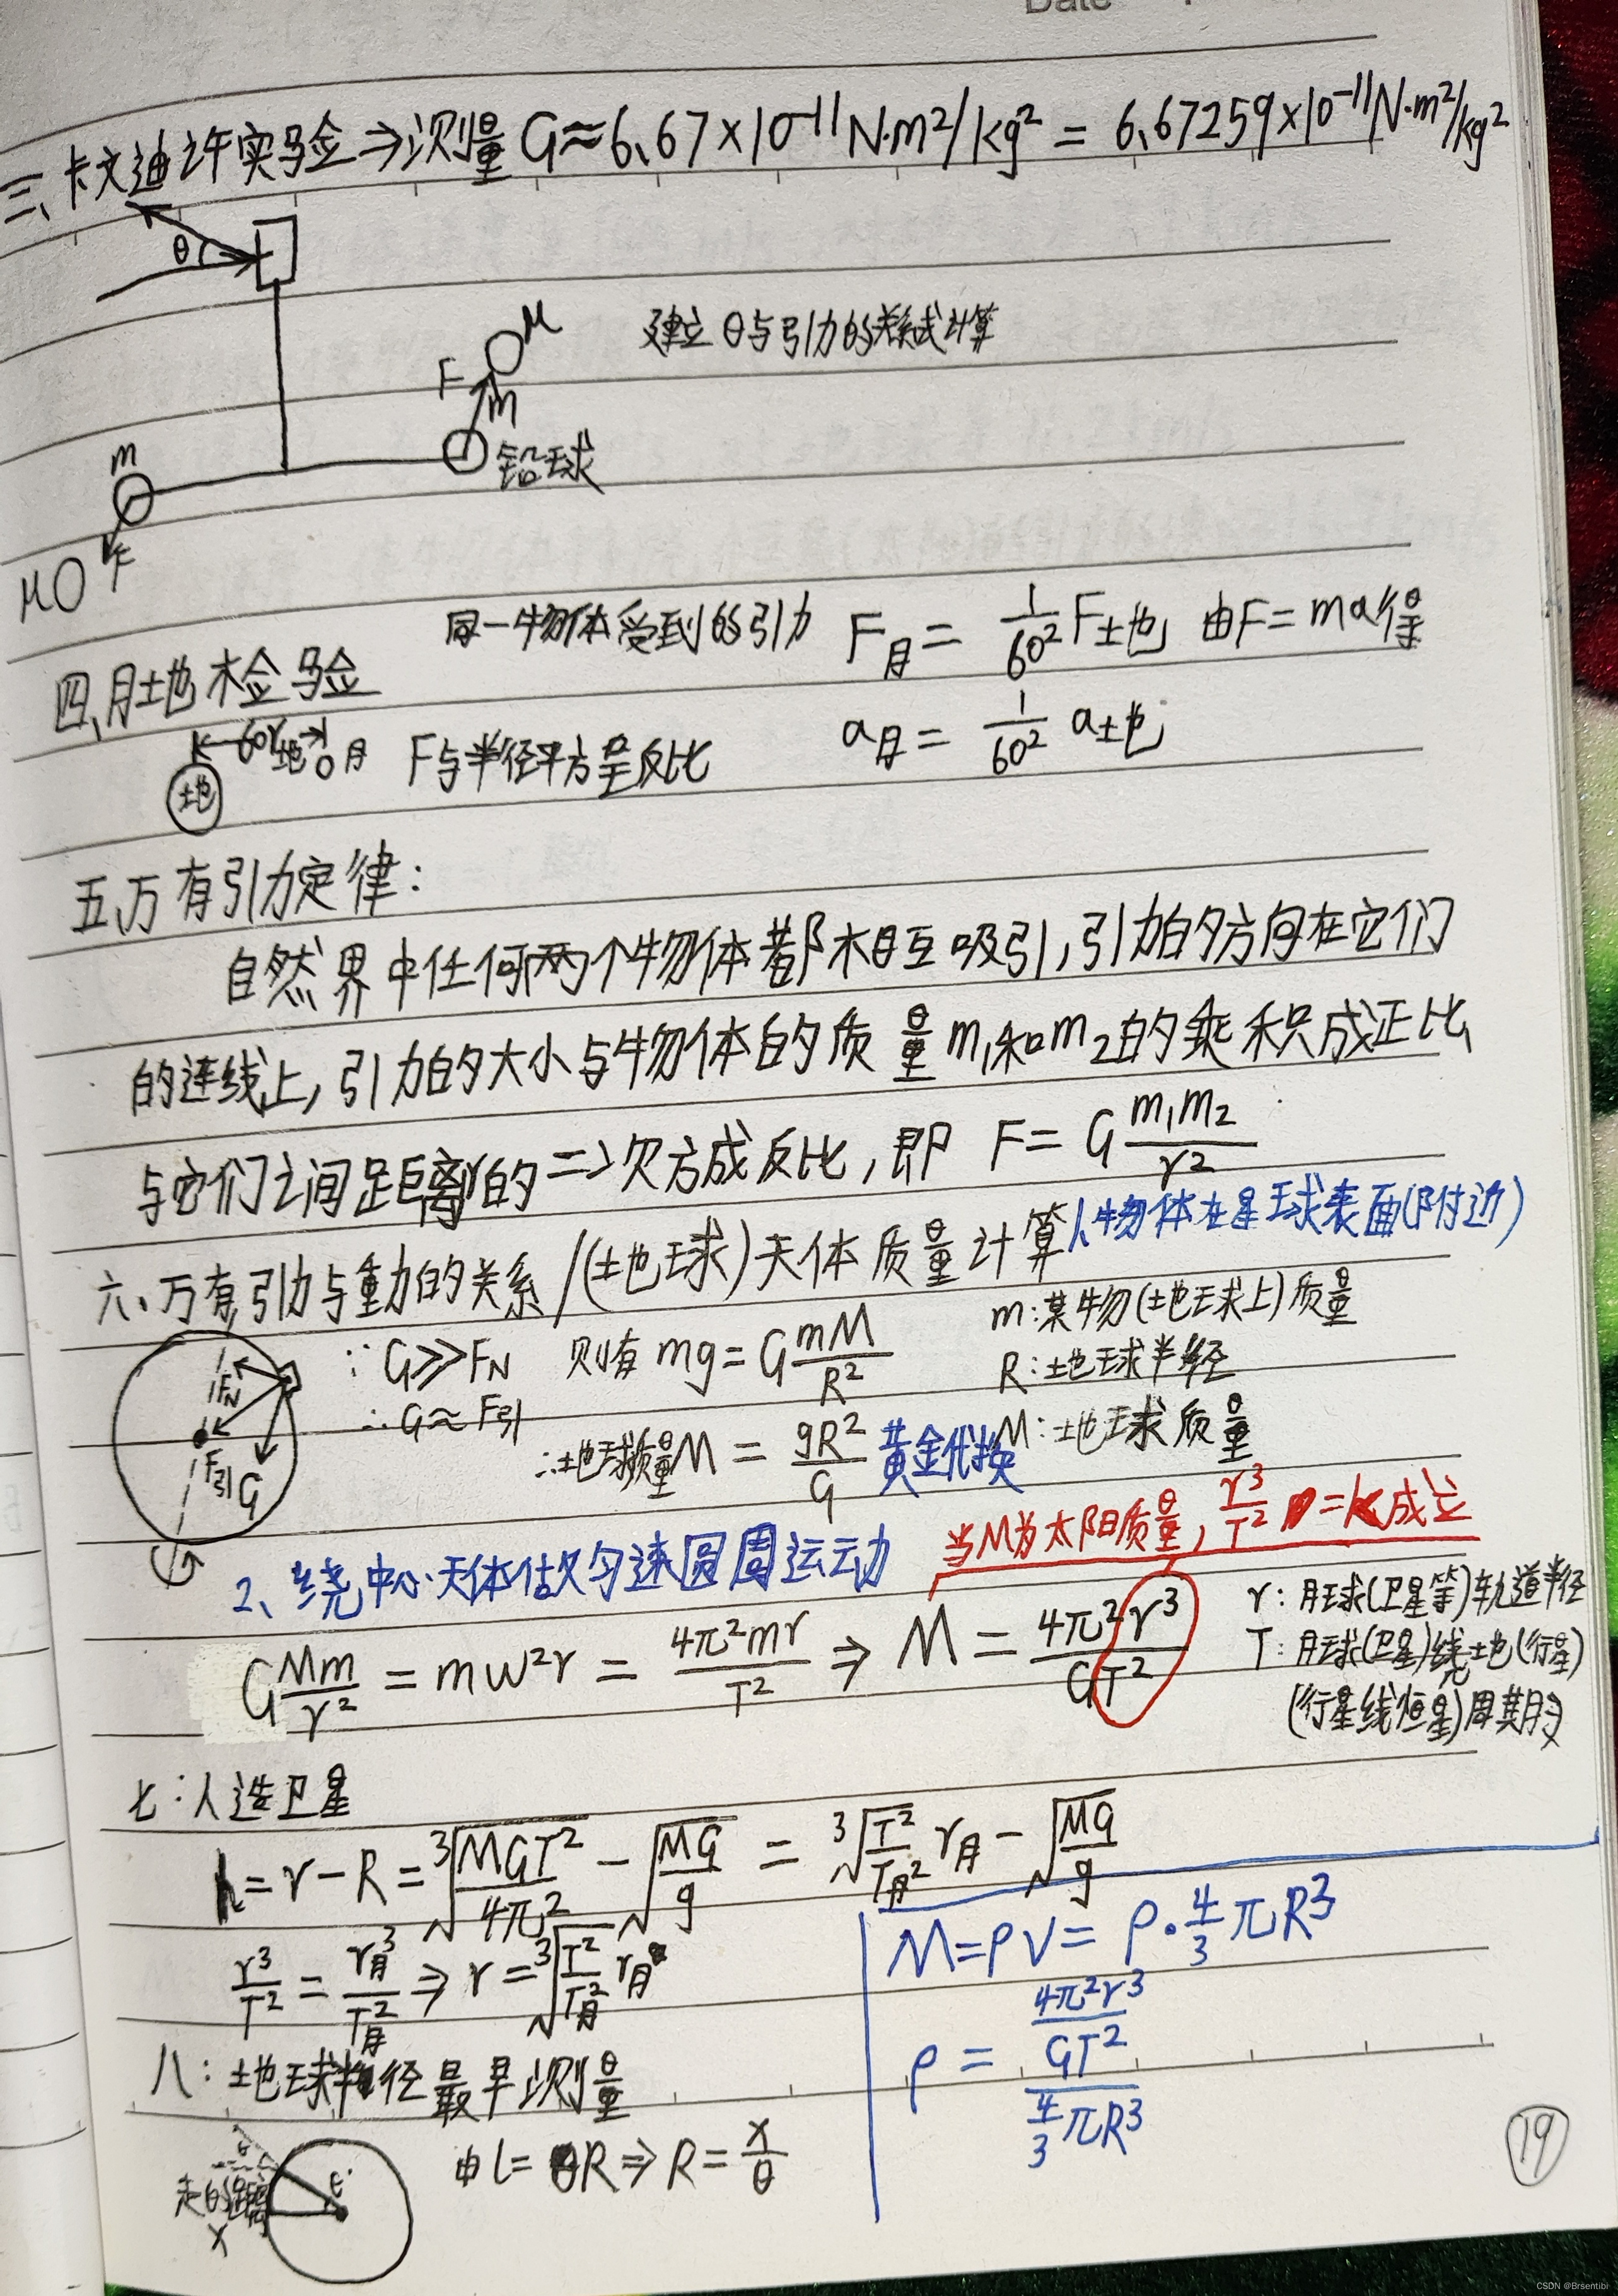 Date
三、卡文迪许实验⇒测量 G≈6.67×10⁻¹¹N·m²/kg² = 6.67259×10⁻¹¹N·m²/kg²
θ
M
F
m
建立θ与引力的关系式计算
m
铅球
F
M
同一物体受到的引力 F月 = 1/60² F地 由F=ma得
四、月地检验
60r地 月
地
F与半径平方呈反比
a月 = 1/60² a地
五、万有引力定律:
自然界中任何两个物体都相互吸引,引力的方向在它们
的连线上,引力的大小与物体的质量m₁和m₂的乘积成正比
与它们之间距离r的二次方成反比,即 F = G m₁m₂/r²
六、万有引力与重力的关系/(地球)天体质量计算 1、物体在星球表面(附边)
∵ G≫F_N 则有 mg = G mM/R²
m:某物(地球上)质量
R:地球半径
F_N
∴ G≈F引
∴地球质量M = gR²/G 黄金代换
M:地球质量
F引 G
当M为太阳质量, r³/T² =k成立
2、绕中心天体做匀速圆周运动
G Mm/r² = mω²r = 4π²mr/T² ⇒ M = 4π²r³/GT²
r:月球(卫星等)轨道半径
T:月球(卫星)绕地(行星)
(行星线恒星)周期
七:人造卫星
h = r − R = ³√(MGT²/4π²) − √(MG/g) = ³√(T²/T月²) r月 − √(MG/g)
r³/T² = r月³/T月² ⇒ r = ³√(T²/T月²) r月
M = ρV = ρ·4/3 πR³
ρ = (4π²r³/GT²)/(4/3 πR³)
八:地球半径最早测量
由l = θR ⇒ R = x/θ
走的距离
x
θ
19
CSDN @Brsentibi